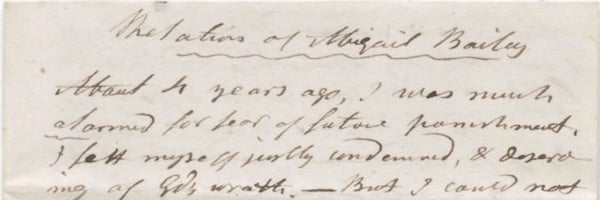 Relation of Abigail Bailey
About 4 years ago, I was much
alarmed for fear of future punishment.
I felt myself justly condemned, & deserv
ing of Gd's wrath. — But I could not